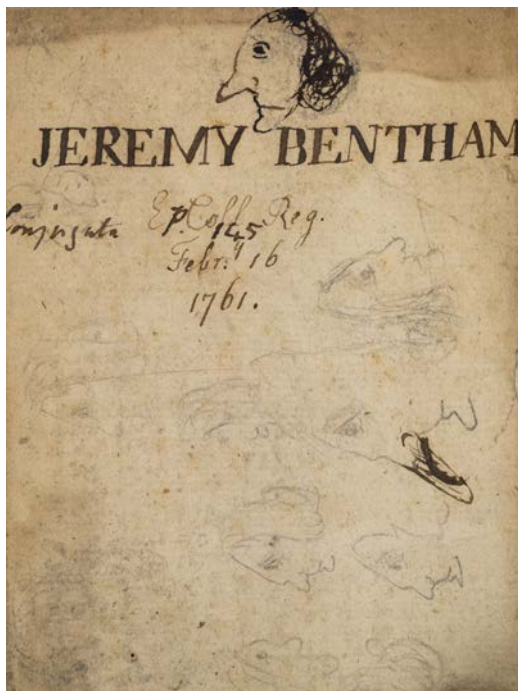 JEREMY BENTHAM
Conjugata E P. Coll. Reg.
145
Febr.y 16
1761.